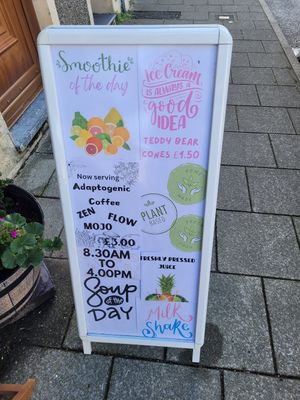 Smoothie
of the day
Now serving
Adaptogenic
Coffee
ZEN FLOW
MOJO
£3.00
8.30AM
TO
4.00PM
Soup
OF THE
DAY
ice CREAM
IS ALWAYS A
good
IDEA
TEDDY BEAR
CONES £1.50
PLANT
BASED
FRESHLY PRESSED
JUICE
Milk
Shake